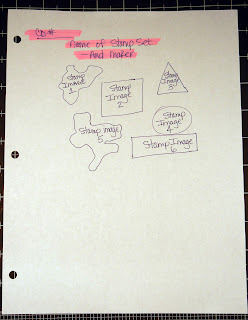 CD #
Name of Stamp Set
And Maker
Stamp
Image
1
Stamp
Image
2
Stamp
Image
3
Stamp
Image
4
Stamp Image
5
Stamp Image
6